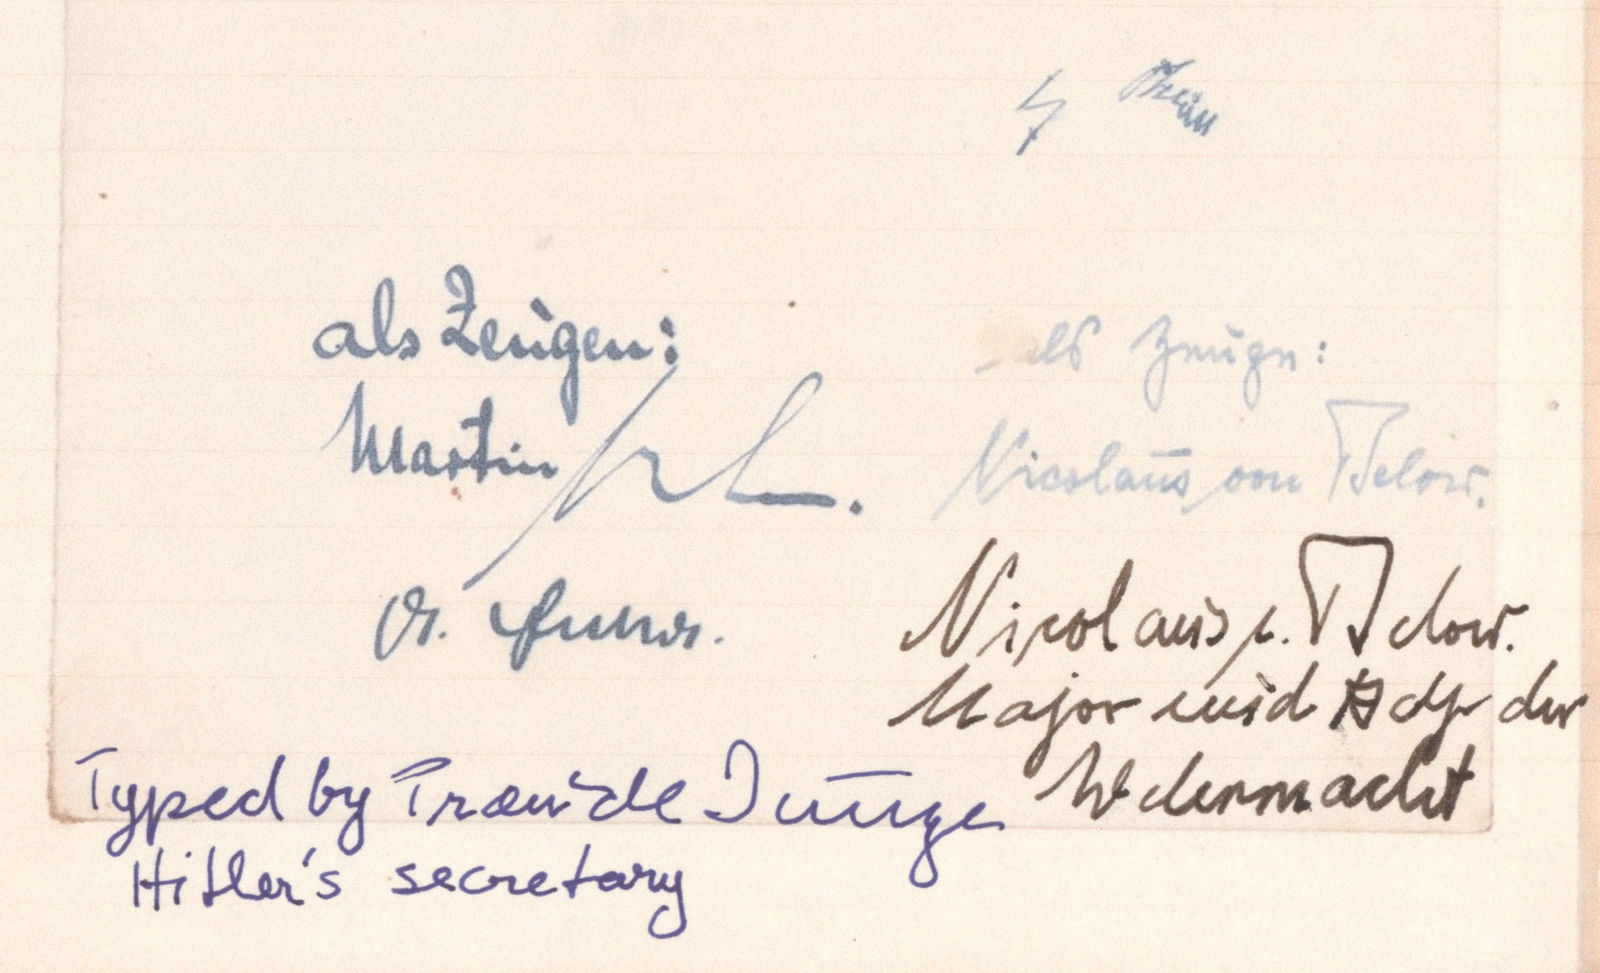 als Zeugen:
Martin
Dr. Fuhr.
als Zeuge:
Nicolaus von Below.
Nicolaus v. Below.
Major und Adj. der
Wehrmacht
Typed by Traudl Junge
Hitler's secretary